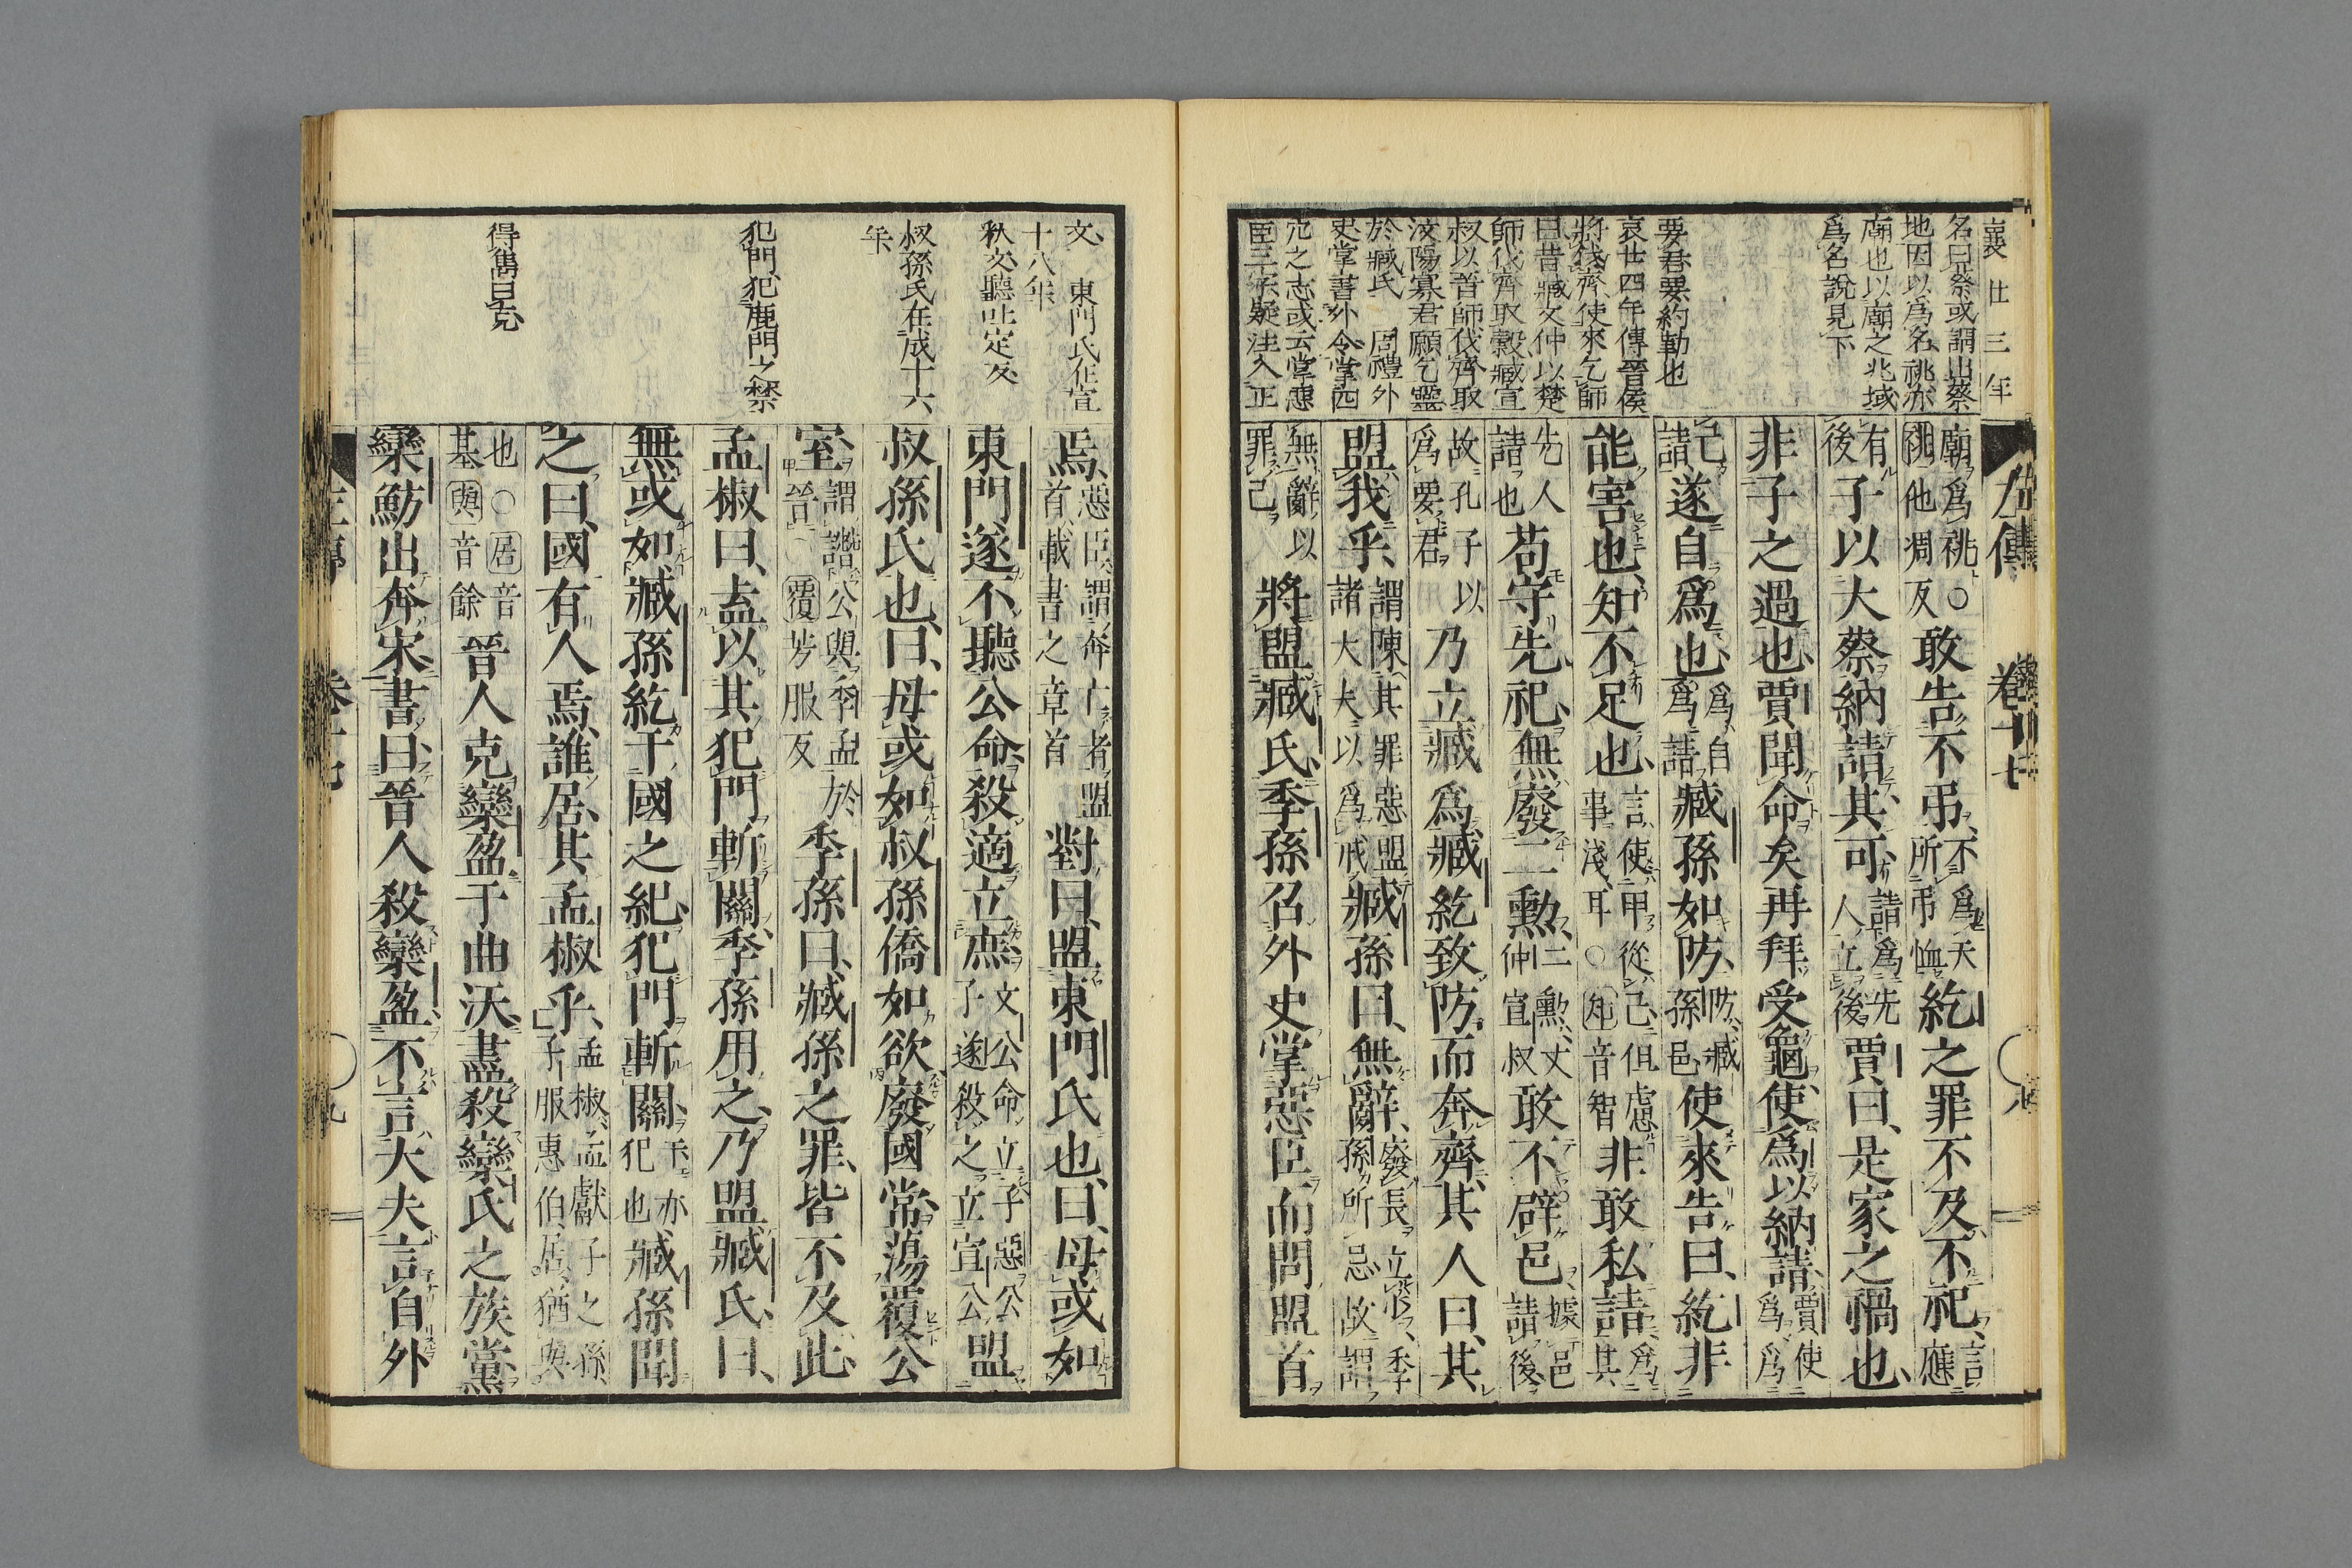 襄廿三年
名曰蔡或謂出蔡
地因以爲名祧亦
廟也以廟之兆域
爲名說見下
要君要約勒也
哀廿四年傳晉侯
將伐齊使來乞師
曰昔臧文仲以楚
師伐齊取穀臧宣
叔以晉師伐齊取
汶陽寡君願乞靈
於臧氏 周禮外
史掌書外令掌四
方之志或云掌惡
臣三字疑注入正
左傳 卷十七
廟爲祧○
祧他凋反
敢告不弔
不爲天
所弔恤
紇之罪不及不祀
言
應
有
後
子以大蔡納請其可
請爲先
人立後
賈曰是家之禍也
非子之過也賈聞命矣再拜受龜使爲以納請
賈使
爲爲
己
請
遂自爲也
爲自
爲請
臧孫如防
防臧
孫邑
使來告曰紇非
能害也知不足也
言使甲從己但慮
事淺耳○知音智
非敢私請
爲
其
先人
請也
苟守先祀無廢二勳
二勳文
仲宣叔
敢不辟邑
據邑
請後
故孔子以
爲要君
乃立臧爲臧紇致防而奔齊其人曰其
盟我乎
謂陳其罪惡盟
諸大夫以爲戒
臧孫曰無辭
廢長立少季
孫所忌故謂
無辭以
罪己
將盟臧氏季孫召外史掌惡臣而問盟首
文 東門氏在宣
十八年
秋文聽吐定反
叔孫氏在成十六
年
犯門犯鹿門之禁
得雋曰克
焉
惡臣謂奔亡者盟
首載書之章首
對曰盟東門氏也曰毋或如
東門遂不聽公命殺適立庶
文公命立子惡公
子遂殺之立宣公
盟
叔孫氏也曰毋或如叔孫僑如欲廢國常蕩覆公
室
謂譖公與季孟於
晉○覆芳服反
季孫曰臧孫之罪皆不及此
孟椒曰盍以其犯門斬關季孫用之乃盟臧氏曰
無或如臧孫紇干國之紀犯門斬關
干亦
犯也
臧孫聞
之曰國有人焉誰居其孟椒乎
孟椒孟獻子之孫
子服惠伯居猶與
也○居音
基與音餘
晉人克欒盈于曲沃盡殺欒氏之族黨
欒魴出奔宋書曰晉人殺欒盈不言大夫言自外